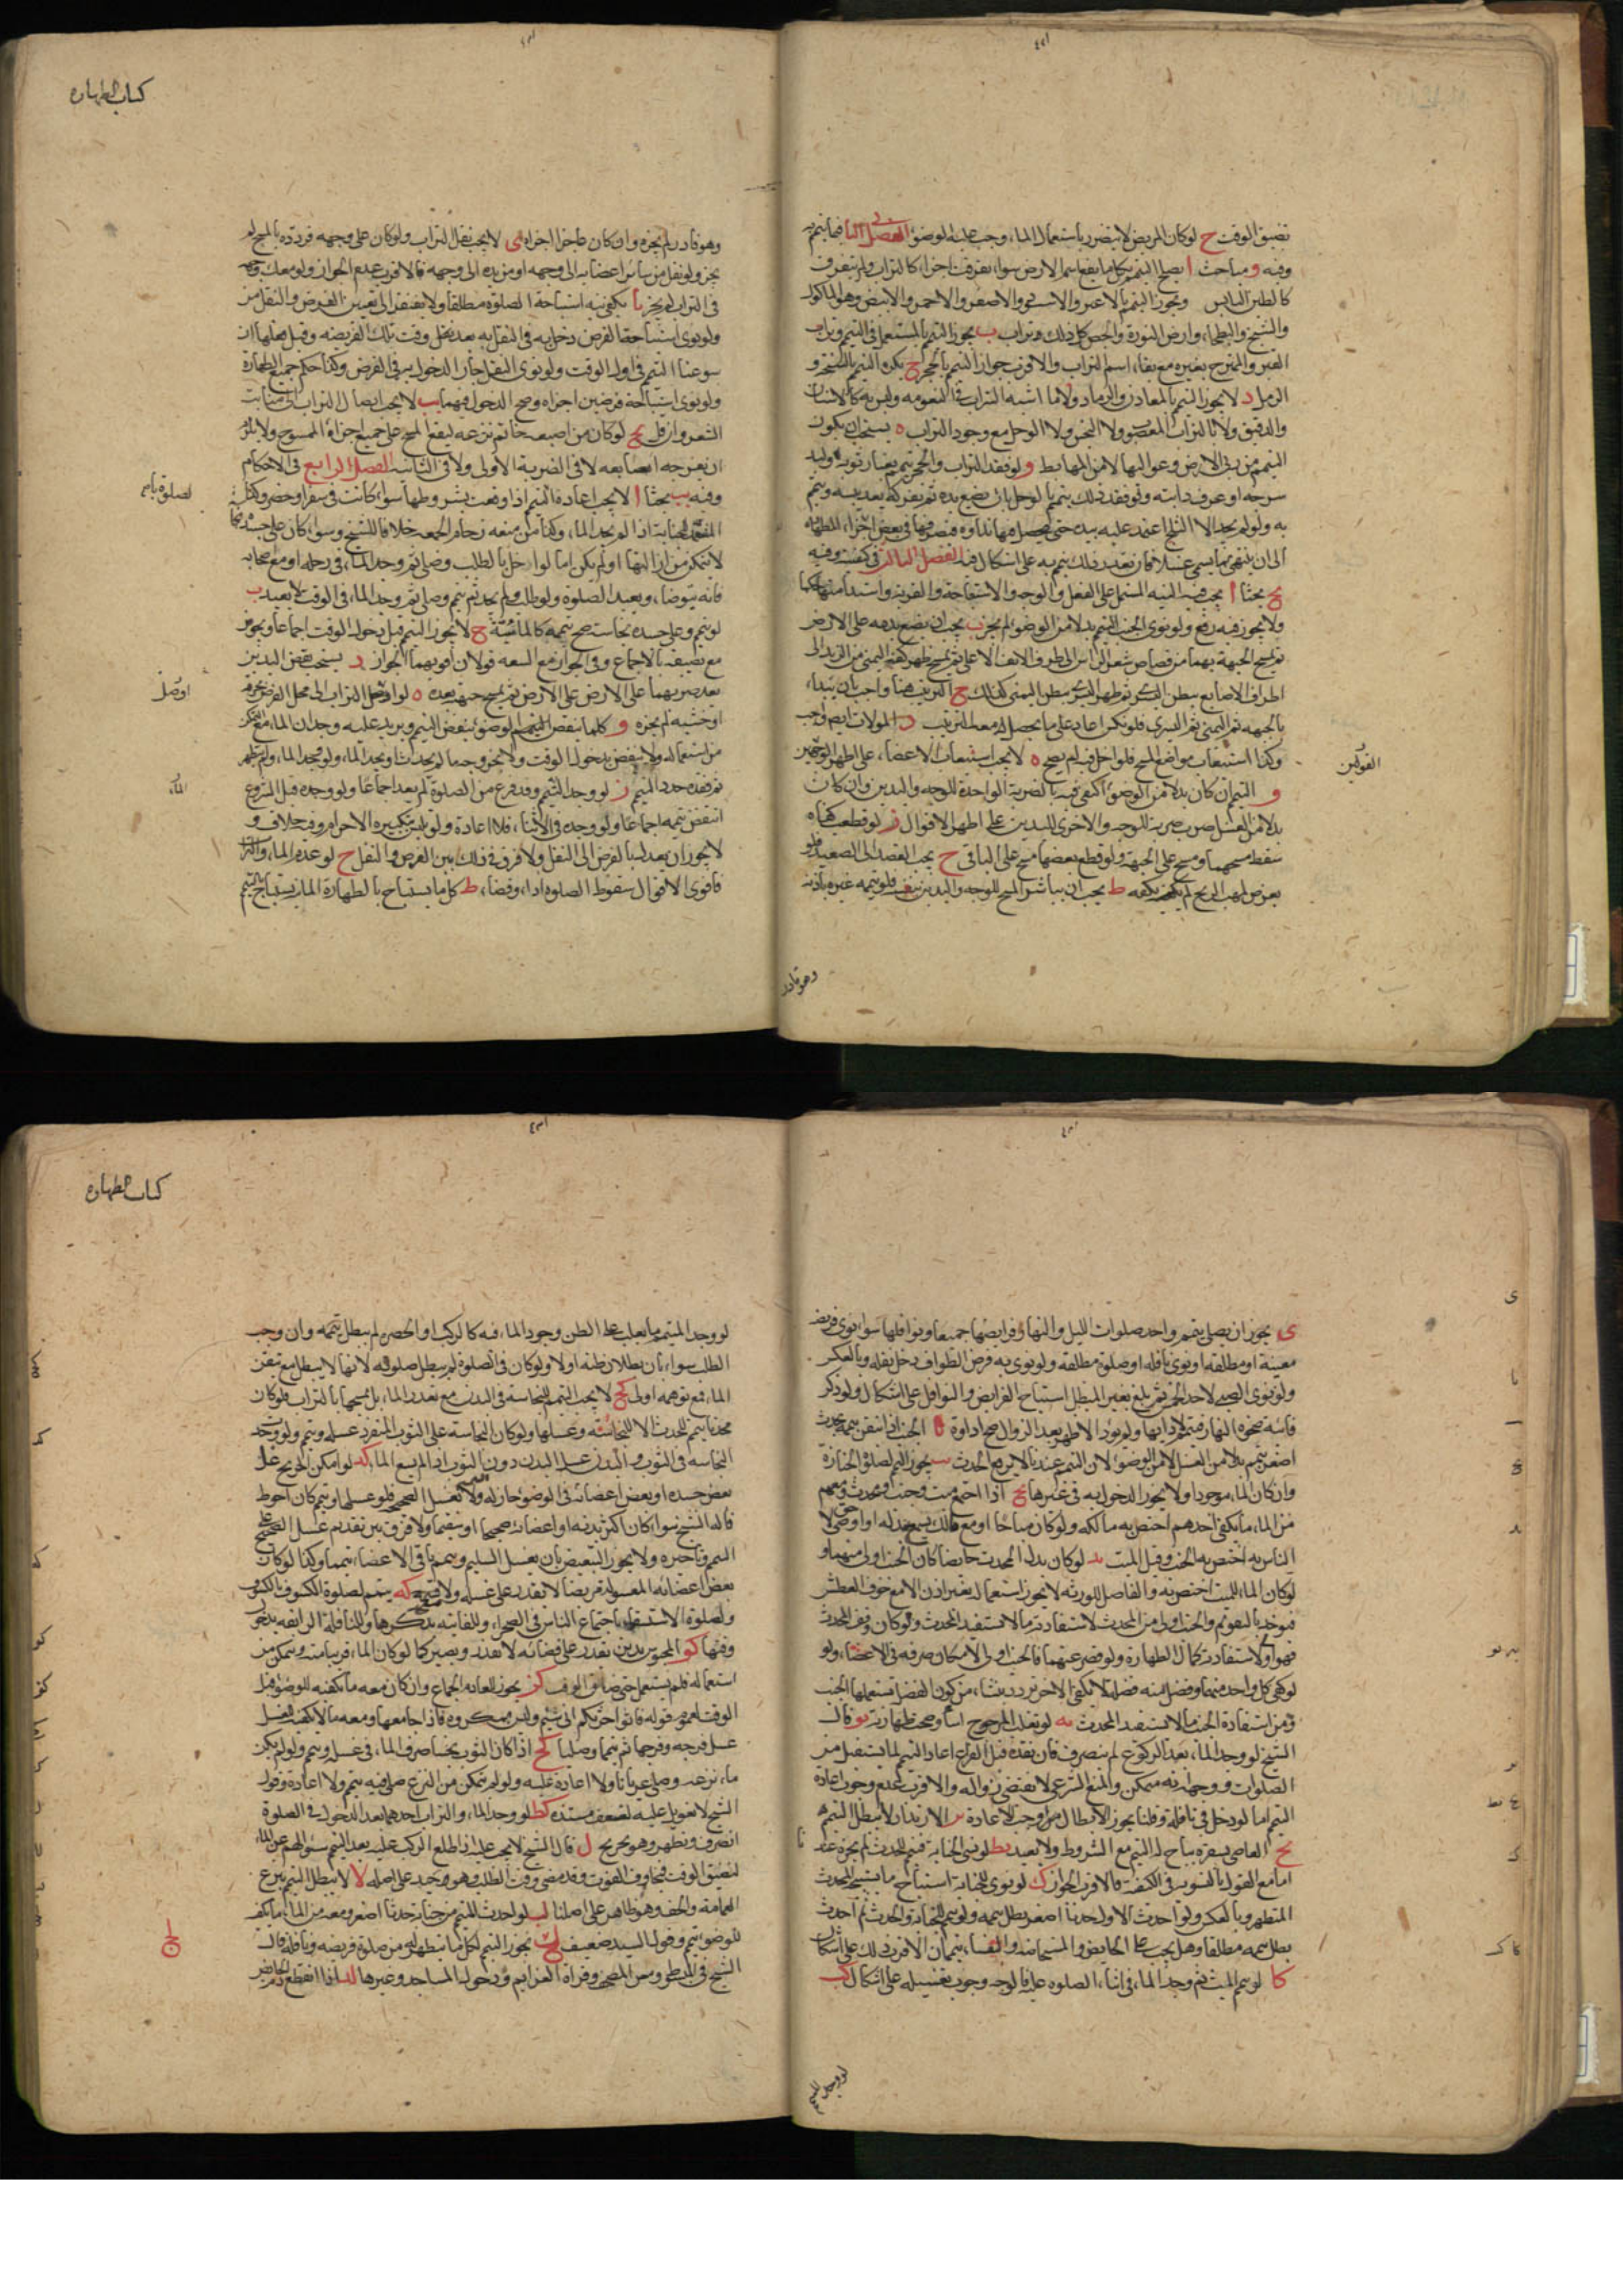 كتاب الطهارة
تضيق الوقت ح لو كان المريض لا يتضرر باستعمال الماء وجب عليه الوضوء الفصل الثاني فيما يتيمم به
وفيه و مباحث ا يصح التيمم بكل ما يقع عليه اسم الارض سواء تفرقت اجزاؤه كالتراب ولم يتفرق
كالطين اليابس ويجوز التيمم بالاعفر والاسود والاصفر والاحمر والابيض وهو الماكول
والسبخ والبطحاء وارض النورة والجص كل ذلك وتراب ب يجوز التيمم بالمستعمل في التيمم وتراب
القبر والممتزج بغيره مع بقاء اسم التراب والاقرب جواز التيمم بالحجر ج يكره التيمم بالسبخة و
الرمل د لا يجوز التيمم بالمعادن والرماد ولا بما اشبه التراب في النعومة وليس به كالاشنان
والدقيق ولا بالتراب المغصوب ولا النجس ولا الوحل مع وجود التراب ه يستحب ان يكون
التيمم من ربى الارض وعواليها لا من المهابط و لو فقد التراب والحجر تيمم بغبار ثوبه ولبد
سرجه او عرف دابته ولو فقد ذلك تيمم بالوحل بان يضع يده ثم يفركه بعد يبسه ويتيمم
به ولو لم يجد الا الثلج اعتمد عليه بيده حتى يحصل منها نداوة
الى ان ينتهي ما يسمى غسلا فان تعذر ذلك تيمم به على اشكال الفصل الثالث في كيفيته وفيه
بحثا ا يجب فيه النية المشتمل على الفعل والوجه والاستباحة والقربة واستدامتها حكما
ولا يجوز فيه رفع ولو نوى الجنب التيمم بدلا من الوضوء لم يجز ب يجب ان يضع يديه على الارض
ثم يمسح الجبهة بهما من قصاص شعر الراس الى طرف الانف الاعلى ثم يمسح ظهر كفه اليمنى من الزند الى
اطراف الاصابع ببطن اليسرى ثم ظهر اليسرى ببطن اليمنى كذلك ج الترتيب هنا واجب بان يبدا
بالجبهة ثم اليمنى ثم اليسرى فلو نكس اعاد على ما يحصل له معه الترتيب د الموالات ايضا واجب
وكذا استيعاب مواضع المسح فلو اخل به لم يصح ه لا يجب استيعاب الاعضاء على اظهر القولين
القولين
و التيمم ان كان بدلا من الوضوء اكتفى فيه بالضربة الواحدة للوجه واليدين وان كان
بدلا من الغسل ضرب ضربة للوجه والاخرى لليدين على اظهر الاقوال ز لو قطعت كفاه
سقط مسحهما ومسح على الجبهة ولو قطع بعضها مسح على الباقي ح يجب القصد الى الصعيد فلو
تعرض لمهب الريح لم يكفه ط يجب ان يباشر المسح للوجه واليدين بنفسه فلو يممه غيره باذنه
وهو قادر
وهو قادر لم يجزه وان كان عاجزا اجزاه ى لا يجب نقل التراب ولو كان على وجهه فردده بالمسح لم
يجز ولو نقل من سائر اعضائه الى وجهه او من يده الى وجهه فالاقرب عدم الجواز ولو معك وجهه
في التراب لم يجز يا يكفي نية استباحة الصلوة مطلقا ولا يفتقر الى تعيين الفرض والنفل
ولو نوى استباحة الفرض دخل به في النفل به بعد دخل وقت تلك الفريضة وقبل فعلها ان
سوغنا التيمم في اول الوقت ولو نوى النفل جاز الدخول به في الفرض وكذا حكم جميع الطهارة
ولو نوى استباحة فرضين اجزاه وصح الدخول فيهما يب لا يجب ايصال التراب الى منابت
الشعر وان قل يج لو كان من اصبعه خاتم نزعه ليقع المسح على جميع اجزاء الممسوح ولا يلزم
ان يفرجه اصابعه لا في الضربة الاولى ولا في الثانية الفصل الرابع في الاحكام
وفيه بحثا ا لا يجب اعادة التيمم اذا وقعت بشروطها سواء كانت في سفر او حضر وكذا
لصلوة بتيمم
المتعمد للجنابة اذا لم يجد الماء وكذا من منعه زحام الجمعة خلافا للشيخ وسواء كان على جسده نجاسة
لا يتمكن من ازالتها او لم يكن اما لو اخل بالطلب وصلى ثم وجد الماء في رحله او مع اصحابه
فانه يتوضا ويعيد الصلوة ولو طلب ولم يجد ثم تيمم وصلى ثم وجد الماء في الوقت لا يعيد ب
لو تيمم وعلى جسده نجاسة صح تيممه كالماشية ج لا يجوز التيمم قبل دخول الوقت اجماعا ويجوز
مع تضييقه بالاجماع وفي الجواز مع السعة قولان اقويهما الجواز د يستحب نفض اليدين
بعد ضربهما على الارض ثم يمسح جبهته بعده ه لو اوصل التراب الى محل الفرض بخرقة
اوصل
او خشبة لم يجزه و كلما ينقض الوضوء ينقض التيمم ويزيد عليه وجدان الماء مع التمكن
من استعماله ولا ينتقض بدخول الوقت ولا بخروجه ما لم يحدث او يجد الماء ولو وجد الماء ولم يتطهر
ثم فقده جدد التيمم ز لو وجد المتيمم وقد فرغ من الصلوة لم يعد اجماعا ولو وجده قبل الشروع
الماء
انتقض تيممه اجماعا ولو وجده في الاثناء فلا اعادة ولو تلبس بتكبيرة الاحرام وفيه خلاف و
لا يجوز ان يعدل بالفرض الى النفل ولا فرق في ذلك بين الفرض والنفل ح لو عدم الماء والتراب
فاقوى الاقوال سقوط الصلوة اداء وقضاء ط كل ما يستباح بالطهارة المائية يستباح بالتيمم
كتاب الطهارة
ى يجوز ان يصلي بتيمم واحد صلوات الليل والنهار فرايضها جميعا ونوافلها سواء نوى فريضة
معينة او مطلقة او نوى نافلة او صلوة مطلقة ولو نوى به فرض الطواف دخل بنفله وبالعكس
ولو نوى الصبي لاحد الخمس ثم بلغ بغير المبطل استباح الفرايض والنوافل على اشكال ولو ذكر
فائتة ضحوة النهار فتيمم لادائها ولم يؤد الا الظهر بعد الزوال صح اداؤه يا الجنب اذا انتقض تيممه بحدث
اصغر تيمم بدلا من الغسل لا من الوضوء لان التيمم عندنا لا يرفع الحدث يب يجوز التيمم لصلوة الجنازة
وان كان الماء موجودا ولا يجوز الدخول به في غيرها يج اذا اجتمع ميت وجنب ومحدث ومعهم
من الماء ما يكفي احدهم اختص به مالكه ولو كان مباحا او مع مالك يسمح ببذله او اوصى لاحق
الناس به اختص به الجنب وقيل الميت يد لو كان بدل المحدث حايضا كان الجنب اولى منهما و
لو كان الماء للميت اختص به والفاضل للورثة لا يجوز استعماله بغير اذن الا مع خوف العطش
فيؤخذ بالتقويم والجنب اولى من المحدث لاستفادته ما لا يستفيد المحدث ولو كان وفق المحدث
فهو اولى لاستفادته كمال الطهارة ولو قصر عنهما فالجنب اولى لامكان صرفه في الاعضاء ولو
لو كفى كل واحد منهما وفضل منه فضلة لا يكفي الاخر تردد ينشا من كون الفضل تستعملها الجنب
ومن استفادة الجنب ما لا يستفيد المحدث يه لو تغلب المرجوح اساء وصحت طهارته يو قال
الشيخ لو وجد الماء بعد الركوع لم ينصرف فان فقده قبل الفراغ اعاد التيمم لما يستقبل من
الصلوات ووجهه انه متمكن والمنع الشرعي لا يقتضي زواله والاقرب عندي عدم وجوب اعادة
التيمم اما لو دخل في نافلة وقلنا يجوز الابطال يز الارتداد لا يبطل التيمم
يح العاصي بسفره يباح له التيمم مع الشروط ولا يعيد يط لو نسي الجنابة فتيمم للحدث لم يجزه عند
اما مع القول بالتسوية في الكيفية فالاقرب الجواز ك لو نوى للجنابة استباح ما يستبيحه المحدث
المتطهر وبالعكس ولو احدث الاول حدثا اصغر بطل تيممه ولو تيمم للجنابة والحدث ثم احدث
بطل تيممه مطلقا وهل يجب على الحايض والمستحاضة والنفساء تيممان الاقرب ذلك على اشكال
كا لو تيمم الميت ثم وجد الماء في اثناء الصلوة عليه فالوجه وجوب تغسيله على اشكال كب
لو وجد المتيمم
لو وجد المتيمم ما يغلب على الظن وجود الماء فيه كالركب او الخضرة لم يبطل تيممه وان وجب
الطلب سواء بان بطلان ظنه او لا ولو كان في الصلوة لم يبطل صلوته لانها لا يبطل مع تيقن
الماء فمع توهمه اولى كج لا يجب التيمم للنجاسة في البدن مع تعذر الماء بل يمسحها بالتراب ولو كان
محدثا تيمم للحدث لا للنجاسة وغسلها ولو كان النجاسة على الثوب المنفرد غسله وتيمم ولو وجد
النجاسة في الثوب والبدن غسل البدن دون الثوب اذا لم يتسع الماء كد لو امكن الجريح غسل
بعض جسده او بعض اعضائه في الوضوء جاز له التيمم ولا يغسل الصحيح فلو غسلها وتيمم كان احوط
قاله الشيخ سواء كان اكثر بدنه او اعضائه صحيحا او سقيما ولا فرق بين تقديم غسل الصحيح على
التيمم وتاخيره ولا يجوز التبعيض بان يغسل السليم ويتمم باقي الاعضاء تيمما وكذا لو كان
بعض اعضائه المغسولة مريضا لا يقدر على غسله ولا مسحه كه يتيمم لصلوة الكسوف بالكسوف
ولصلوة الاستسقاء باجتماع الناس في الصحراء وللفايتة بذكرها وللنافلة الراتبة بدخول
وقتها كو المحبوس بدين يقدر على قضائه لا يعذر ويصير كما لو كان الماء قريبا منه ويتمكن من
استعماله فلم يستعمل حتى ضاق الوقت كز يجوز للعادم الجماع وان كان معه ما يكفيه للوضوء قبل
الوقت لعموم قوله فاتوا حرثكم انى شئتم وليس بمكروه فاذا جامعها ومعه ما لا يكفيه للغسل
غسل فرجه وفرجها ثم تيمما وصليا كح اذا كان الثوب نجسا صرف الماء في غسله وتيمم ولو لم يكن
ماء نزعه وصلى عريانا ولا اعادة عليه ولو لم يتمكن من النزع صلى فيه بتيمم ولا اعادة وقول
الشيخ لا تعويل عليه لضعف مستنده كط لو وجد الماء والتراب احدهما بعد الدخول في الصلوة
انصرف وتطهر وهو تخريج ل قال الشيخ لا يجب عليه اذا طلع الركب عليه بعد التيمم سؤالهم عن الماء
لتضيق الوقت فيخاف الفوت وقد مضى وقت الطلب وهو جيد على اصله لا لا يبطل التيمم بنزع
العمامة والخف وهو ظاهر على اصلنا لب لو احدث المتيمم من جنابة حدثا اصغر ومعه من الماء ما يكفيه
للوضوء تيمم وقول السيد ضعيف لج يجوز التيمم لكل ما يتطهر له من صلوة فريضة ونافلة قال
الشيخ في المبسوط ومس المصحف وقراءة العزايم ودخول المساجد وغيرها لد اذا انقطع دم الحايض